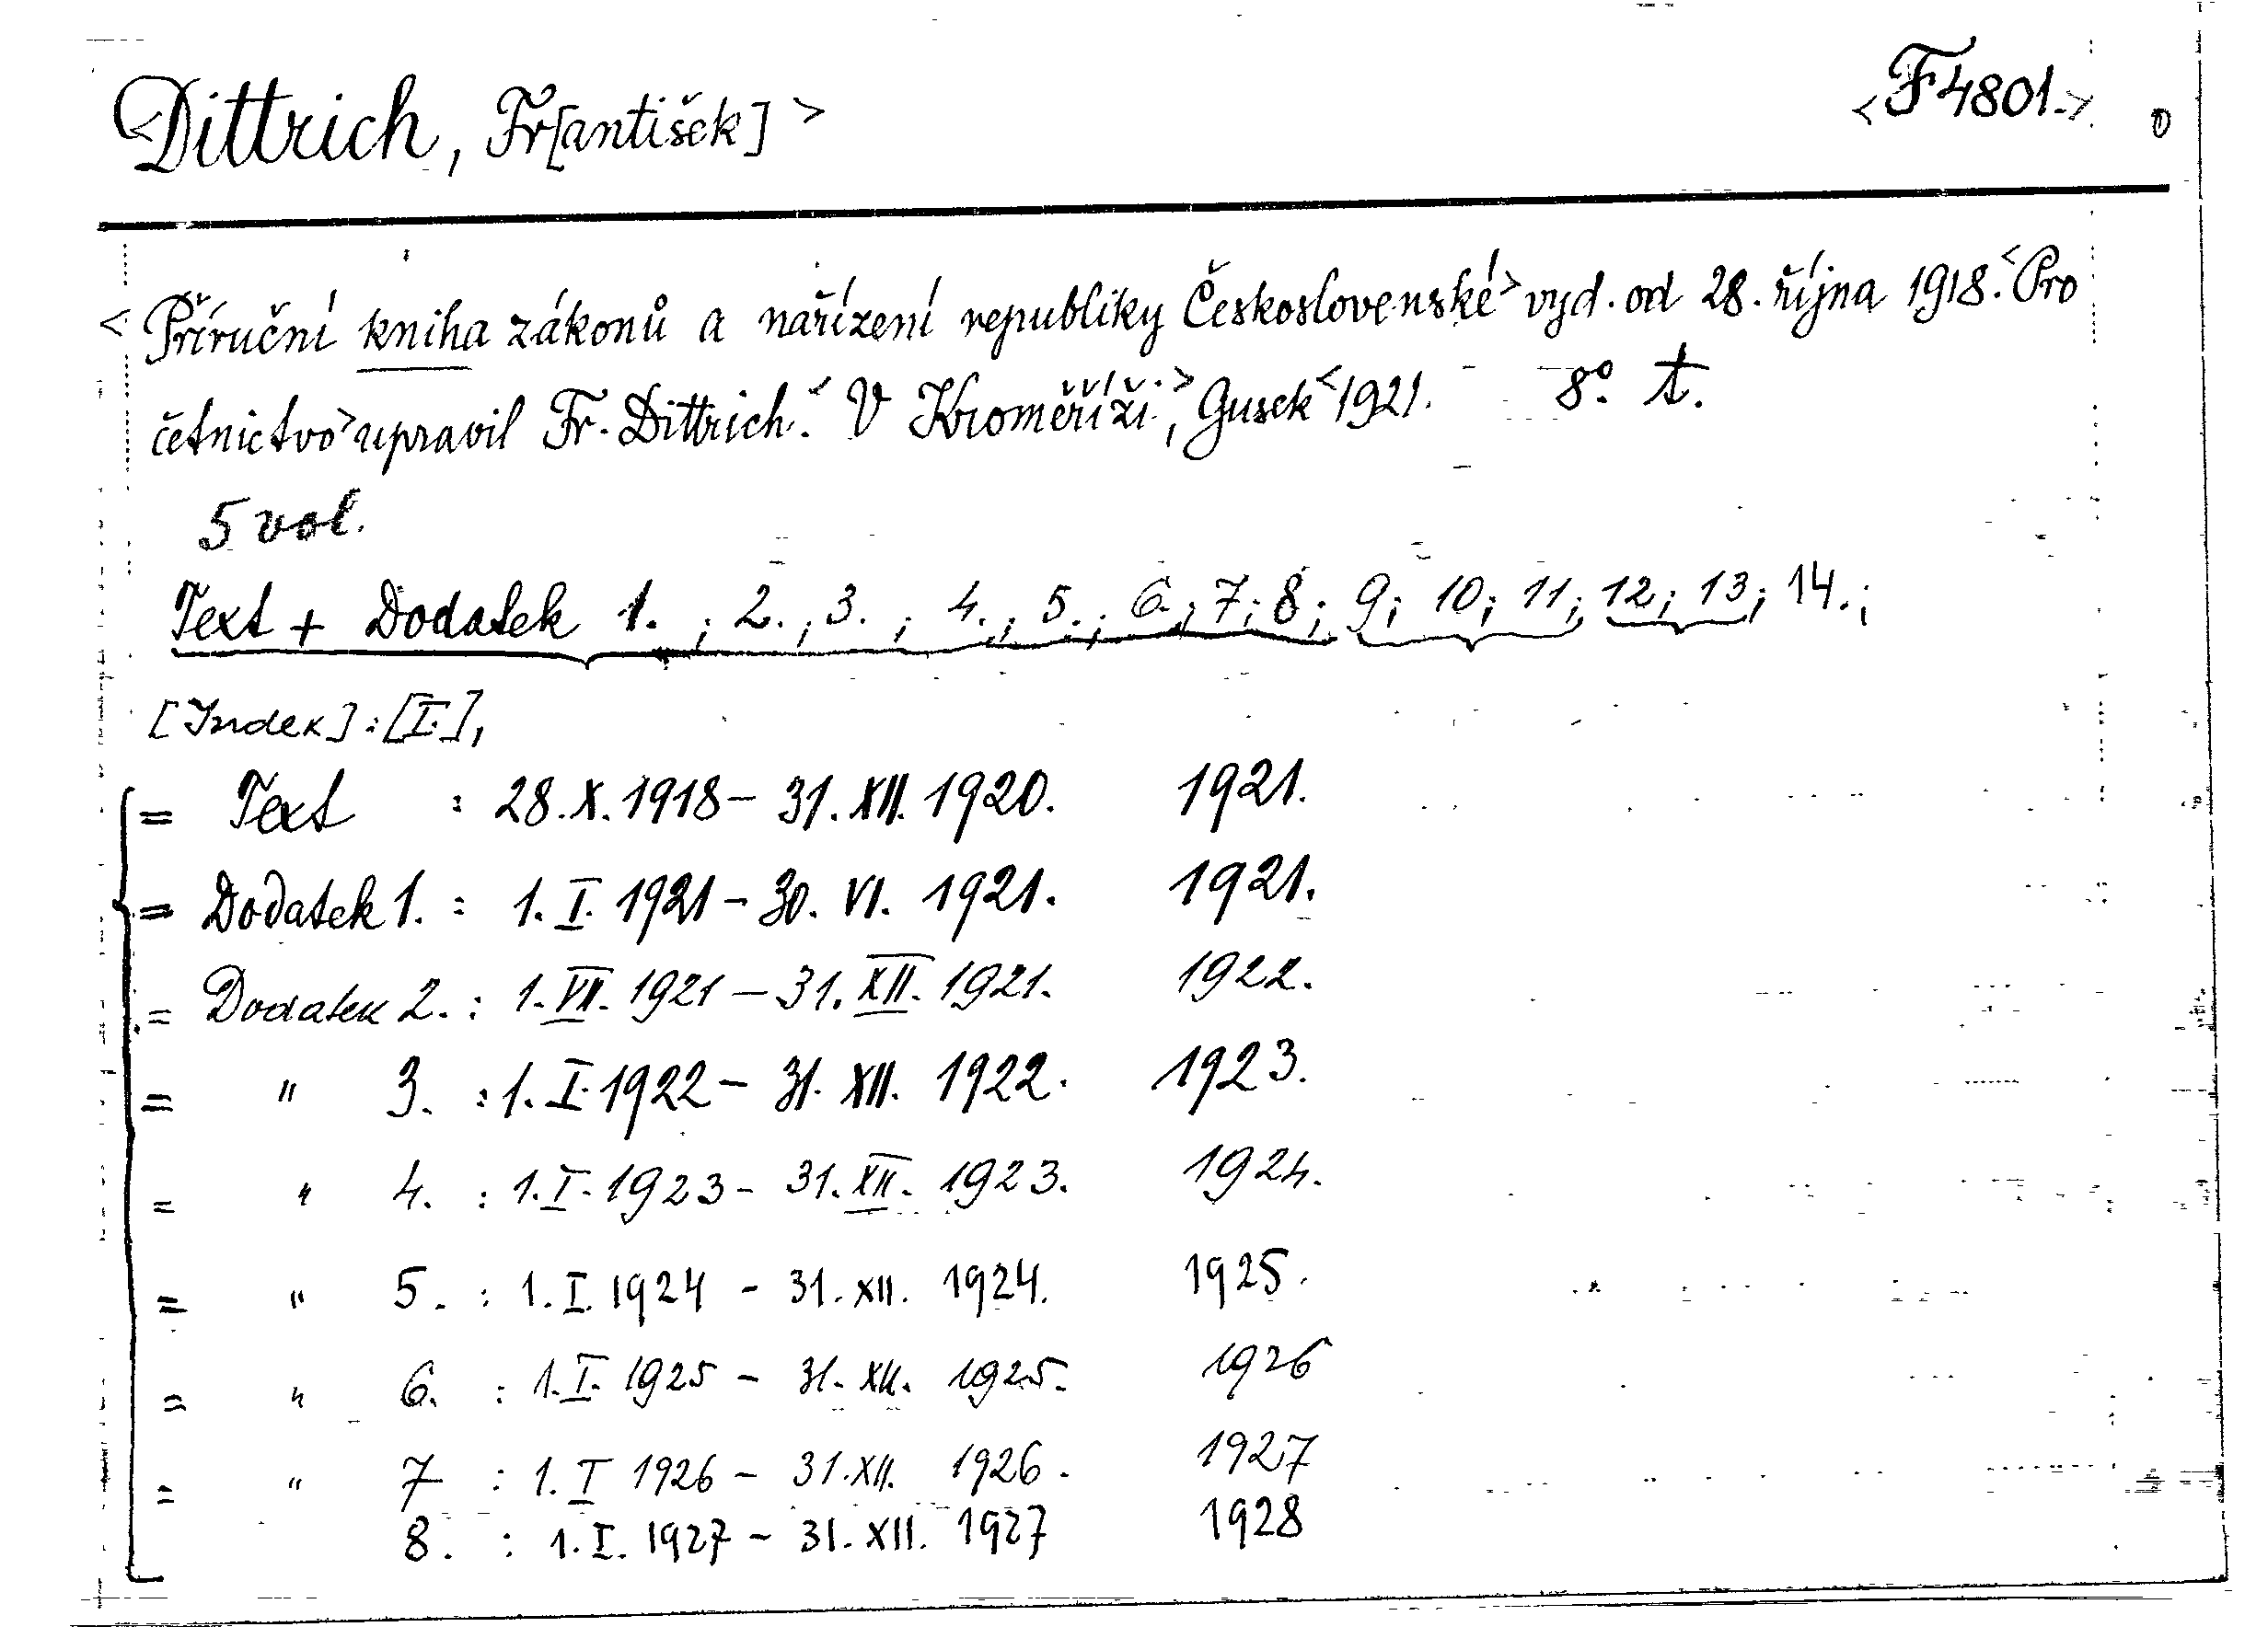 <Dittrich, Fr[antišek]> <F 4801.> 0
<Příruční kniha zákonů a nařízení republiky Československé> vyd. od 28. října 1918. <Pro
četnictvo> upravil Fr. Dittrich. < V Kroměříži.,> Gusek < 1921. 8° t.
5 vol.
Text + Dodatek 1. ; 2. ; 3. ; 4. ; 5. ; 6. ; 7; 8; 9; 10; 11; 12; 13; 14. ;
[Index] : [I.],
= Text : 28. X. 1918 – 31. XII. 1920. 1921.
= Dodatek 1. : 1. I. 1921 – 30. VI. 1921. 1921.
= Dodatek 2. : 1. VII. 1921 – 31. XII. 1921. 1922.
= " 3. : 1. I. 1922 – 31. XII. 1922. 1923.
= " 4. : 1. I. 1923 – 31. XII. 1923. 1924.
= " 5. : 1. I. 1924 – 31. XII. 1924. 1925.
= " 6. : 1. I. 1925 – 31. XII. 1925. 1926
= " 7 : 1. I 1926 – 31. XII. 1926. 1927
8. : 1. I. 1927 – 31. XII. 1927 1928